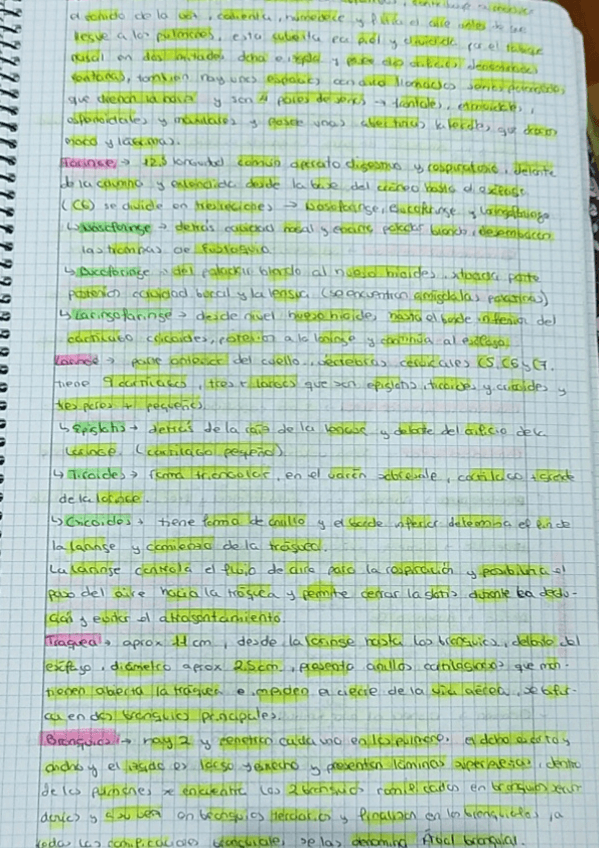 el sonido de la voz, calienta, humedece y filtra el aire antes de que
llegue a los pulmones, esta cubierta en piel y dividida por el tabique
nasal en dos mitades dcha e izqda y
fontanas, tambien hay unos espacios con aire llamados senos paranasales
que drenan la nariz y son 4 pares de senos → frontales, etmoidales,
esfenoidales y maxilares y posee unas aberturas que drenan
moco y lágrimas.
Faringe → 12,5 longuitud común aparato digestivo y respiratorio, delante
de la columna y extendida desde la base del cráneo hasta el esófago
(C6) se divide en tres regiones → Nasofaringe, Bucofaringe y Laringofaringe
↳ Nasofaringe → detrás cavidad nasal y encima paladar blando, desembocan
las trompas de Eustaquio
↳ Bucofaringe → del paladar blando al hueso hioides, situada parte
posterior cavidad bucal y la lengua (se encuentran amigdalas palatinas)
↳ Laringofaringe → desde nivel hueso hioides, hasta el borde inferior del
cartílago cricoides, posterior a la laringe y continúa al esófago.
Laringe → parte anterior del cuello, vertebras cervicales C5, C6 y C7.
tiene 9 cartílagos, tres + largos que son epiglotis, tiroides y cricoides y
tres pares + pequeños.
↳ Epiglotis → detrás de la raíz de la lengua y delante del orificio de la
laringe. (cartílago pequeño).
↳ Tiroides → forma triangular, en el varón sobresale, cartílago + grande
de la laringe.
↳ Cricoides → tiene forma de anillo y el borde inferior determina el fin de
la laringe y comienzo de la tráquea.
La laringe controla el flujo de aire para la respiración y posibilita el
paso del aire hacia la tráquea y permite cerrar la glotis durante la deglu-
ción y evitar el atragantamiento.
Traquea → aprox 11 cm, desde la laringe hasta los bronquios, delante del
esófago, diámetro aprox 2,5cm, presenta anillos cartilaginosos que man-
tienen abierta la tráquea e impiden el cierre de la vía aérea, se bifur-
ca en dos bronquios principales.
Bronquios → hay 2 y penetran cada uno en los pulmones, el dcho es corto y
ancho y el izqdo es largo y estrecho y presentan láminas, dentro
de los pulmones se encuentra los 2 bronquios ramificados en bronquios secun-
darios y a su vez en bronquios terciarios y finalizan en los bronquiolos, a
todas las ramificaciones bronquiales se las denomina Árbol bronquial.